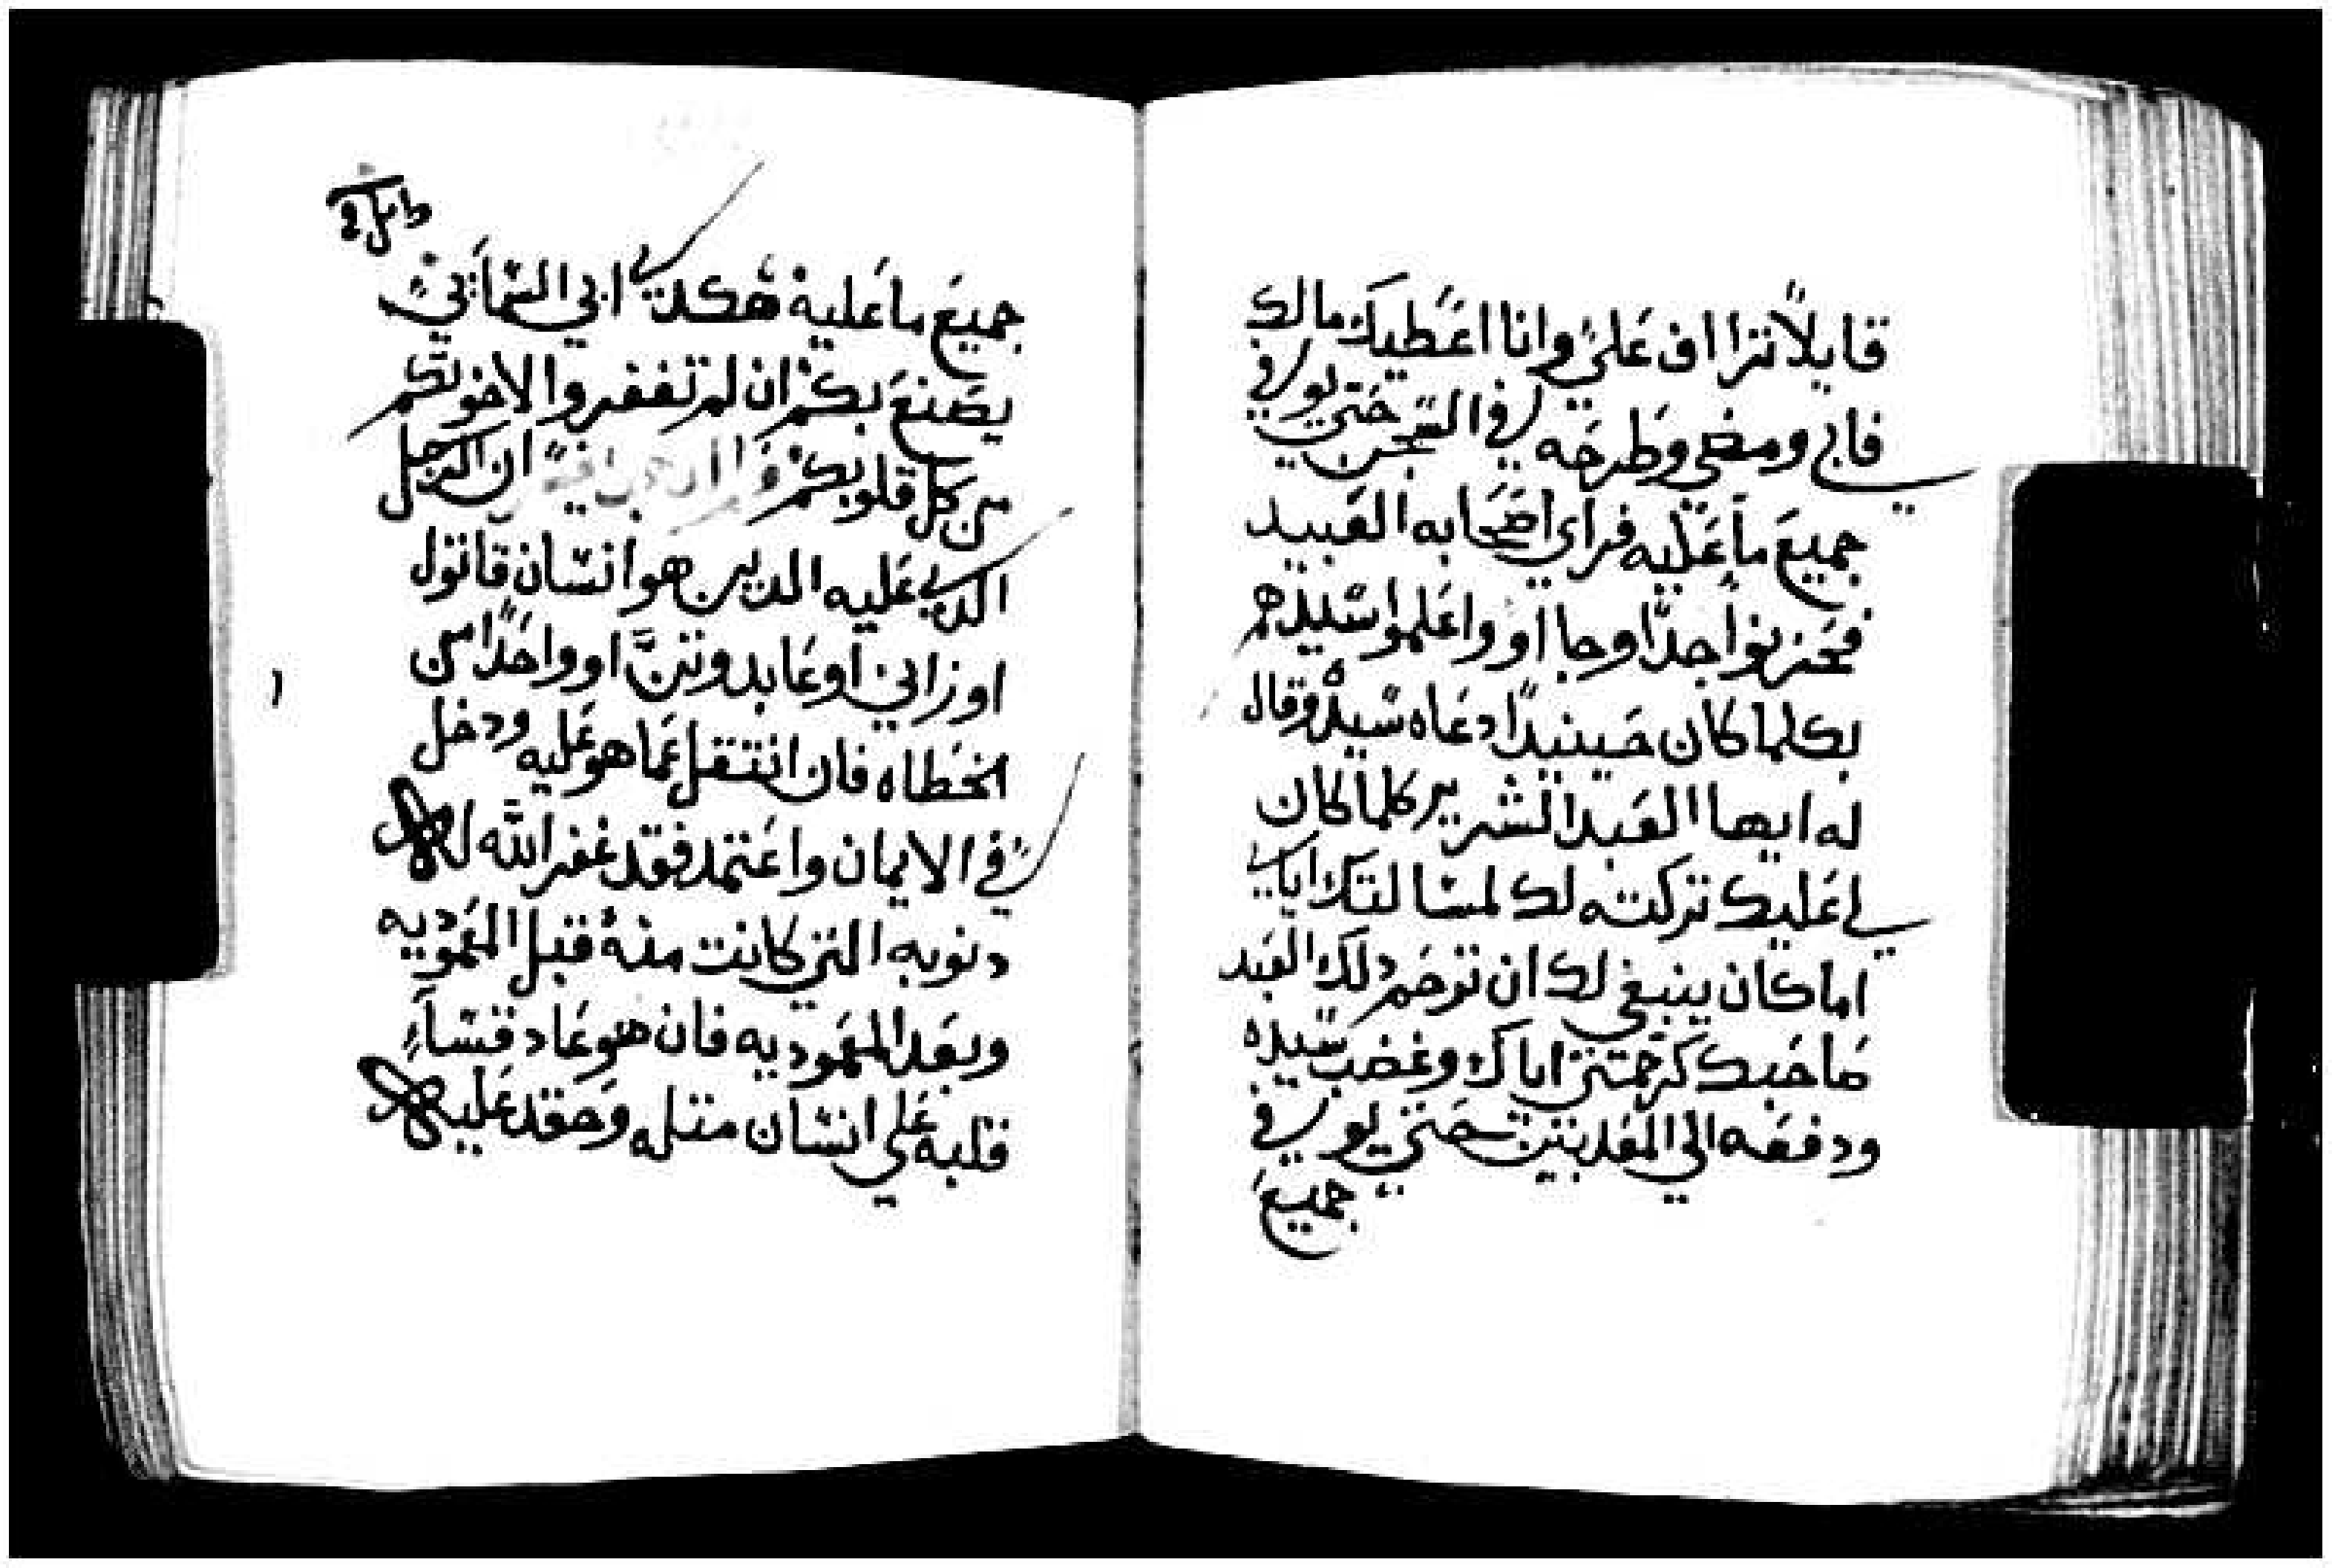 قايلاً تراا اف عَليَّ وانا اعَطيك مالك
فابي ومضي وطرحَه في السّجن حَتي يوفي
جميعَ ماعَليه فراي اصَحَابه العَبيد
فحَزنوا جداً وجااو واعَلموا سّيدهم
بكلما كان حَينيداً دعَاه سّيدهُ وقال
له ايها العَبد الشرير كلما كان
لي عَليك تركته لك لمسّالتك اياي
اما كان ينبغي لك ان ترحَم دلك العَبد
صَاحَبك كرحَمتي اياك وغضب سّيده
ودفعَه الي المعَدبين حَتي يوفي
جميعَ
جميعَ ماعَليهُ هكدي ابي السّمآيي
يصَنعَ بكمْ ان لم تغفروا لاخوتكم
من كل قلوبكمْ ان الرجل
الدي عَليه الدين هو انسّان قاتول
او زاني او عَابد وتنَّ او واحَداً من
الخطاه فان انتقل عَما هو عَليه ودخل
في الايمان واعَتمد فقد غفر الله له
دنوبه التي كانت منهُ قبل المعَموديه
وبعَد المعَموديه فان هو عَاد قسّآء
قلبه عَلي انسّان متله وحَقد عَليه